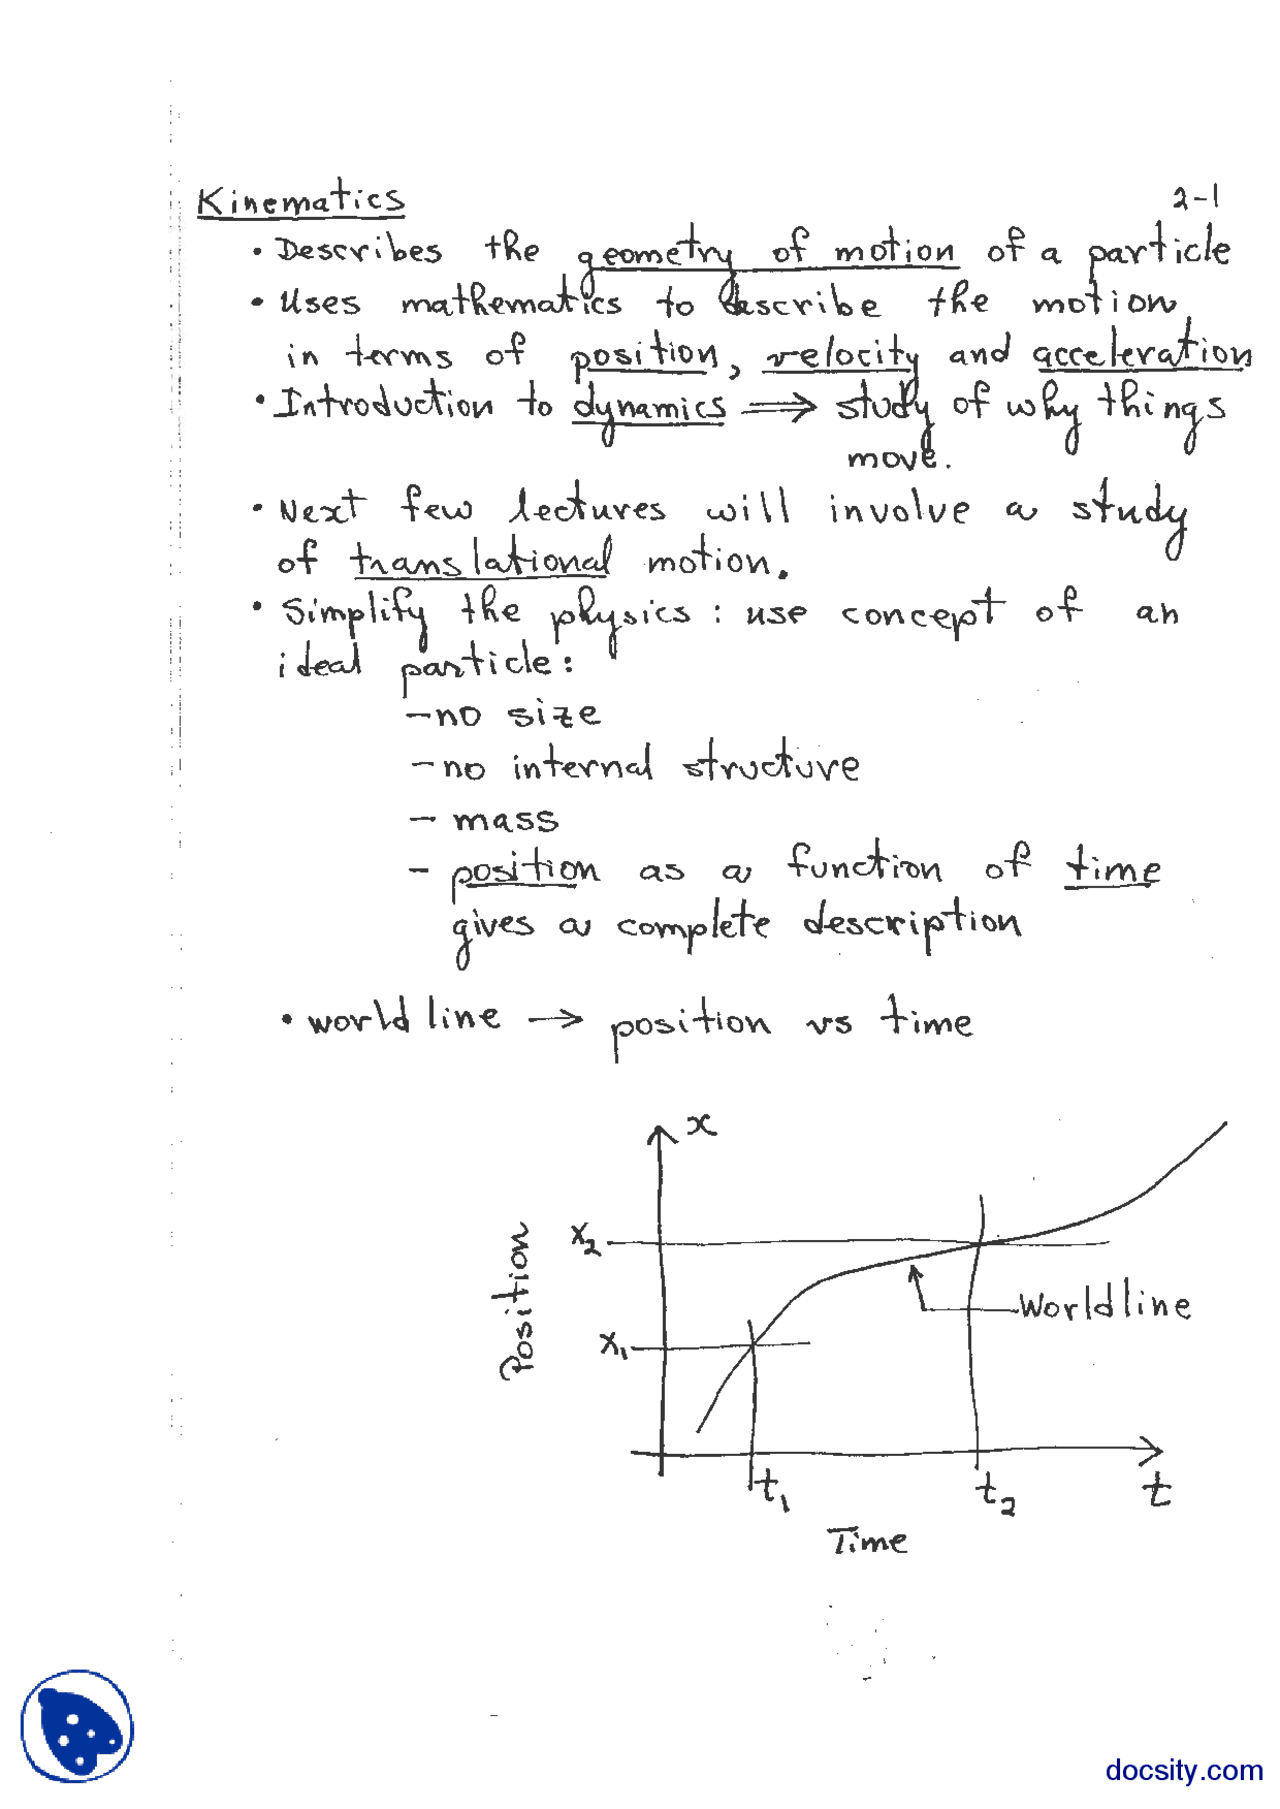 Kinematics 2-1
• Describes the geometry of motion of a particle
• Uses mathematics to describe the motion
in terms of position, velocity and acceleration
• Introduction to dynamics ⟹ study of why things
move.
• Next few lectures will involve a study
of translational motion.
• Simplify the physics : use concept of an
ideal particle:
- no size
- no internal structure
- mass
- position as a function of time
gives a complete description
• world line → position vs time
x
Position
x₂
Worldline
x₁
t₁ t₂ t
Time
docsity.com